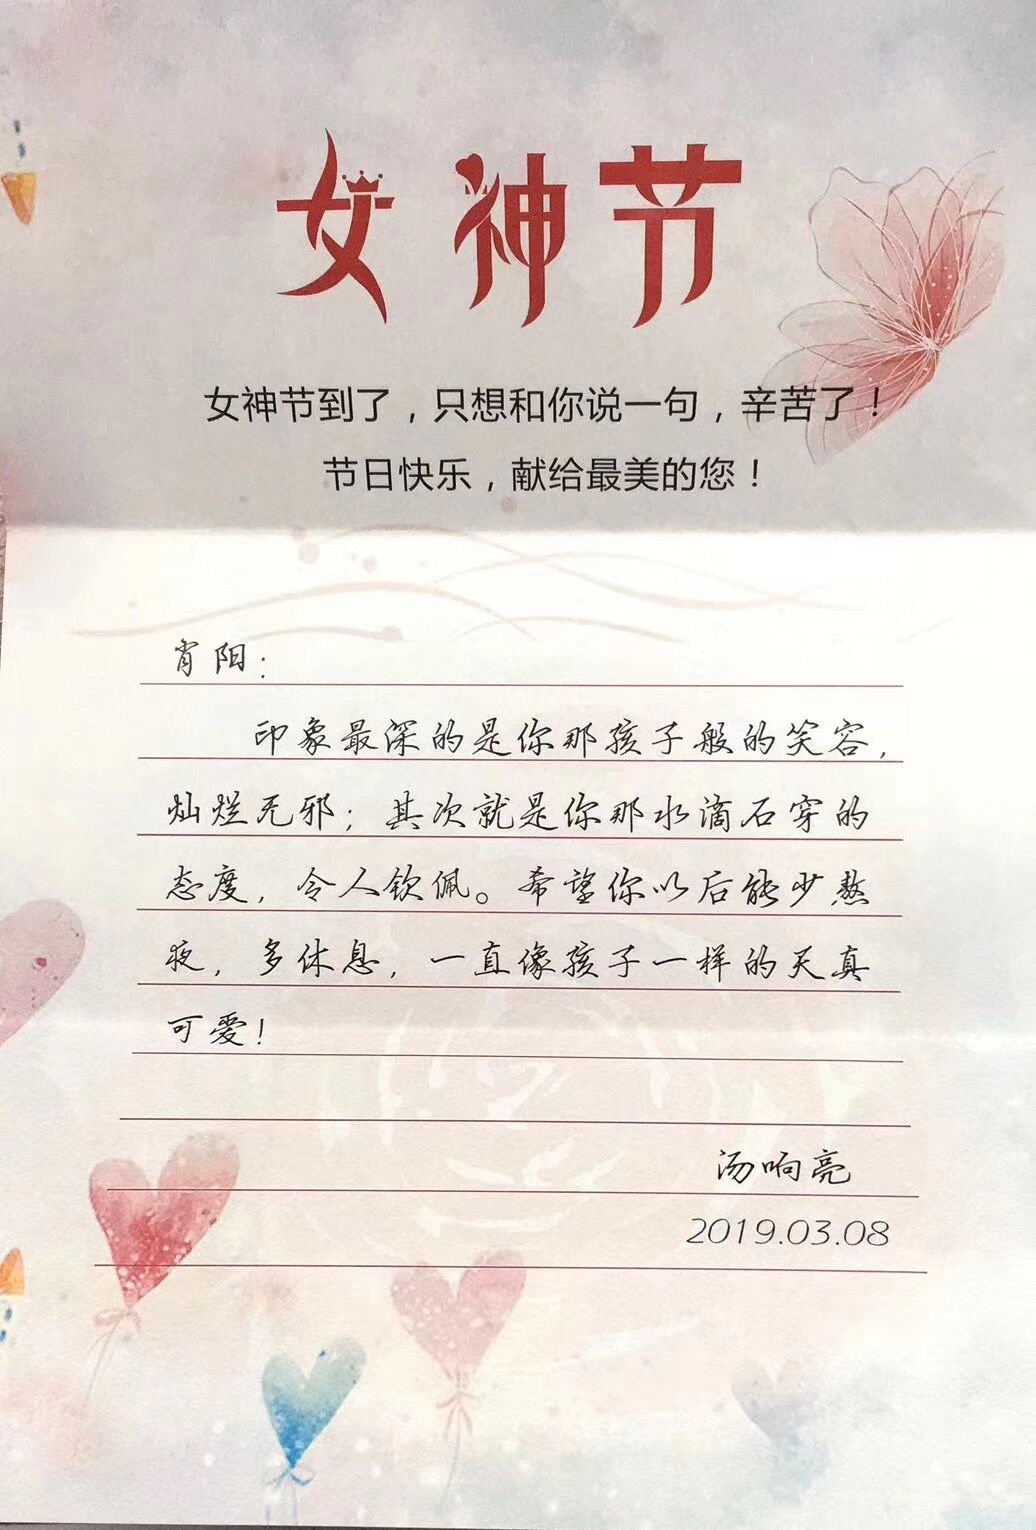 女神节
女神节到了，只想和你说一句，辛苦了！
节日快乐，献给最美的您！
肖阳：
印象最深的是你那孩子般的笑容，
灿烂无邪；其次就是你那水滴石穿的
态度，令人钦佩。希望你以后能少熬
夜，多休息，一直像孩子一样的天真
可爱！
汤响亮
2019.03.08